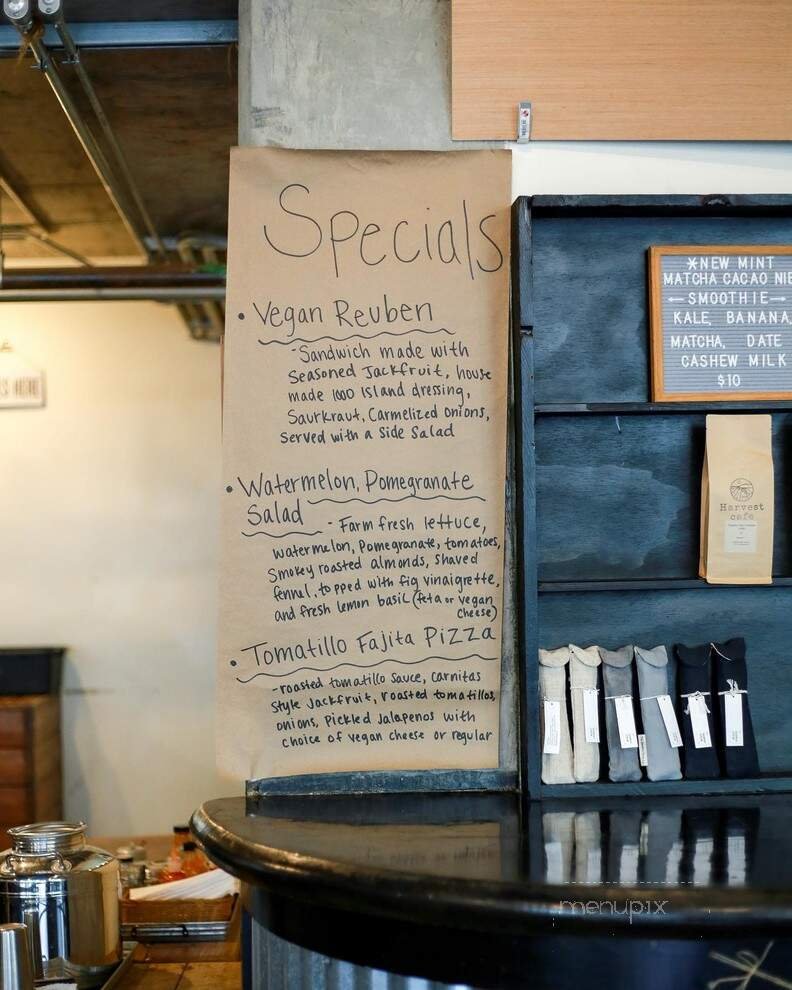 Specials
• Vegan Reuben
- Sandwich made with
Seasoned Jackfruit, house
made 1000 Island dressing,
Saurkraut, Carmelized onions,
Served with a side salad
• Watermelon, Pomegranate
Salad - Farm fresh lettuce,
watermelon, Pomegranate, tomatoes,
Smokey roasted almonds, shaved
fennel, topped with fig vinaigrette,
and fresh lemon basil (feta or vegan
cheese)
• Tomatillo Fajita Pizza
- roasted tomatillo sauce, carnitas
style Jackfruit, roasted tomatillos,
onions, pickled Jalapenos with
choice of vegan cheese or regular
*NEW MINT
MATCHA CACAO NIB
← SMOOTHIE →
KALE, BANANA,
MATCHA, DATE
CASHEW MILK
$10
Harvest
cafe
menupix